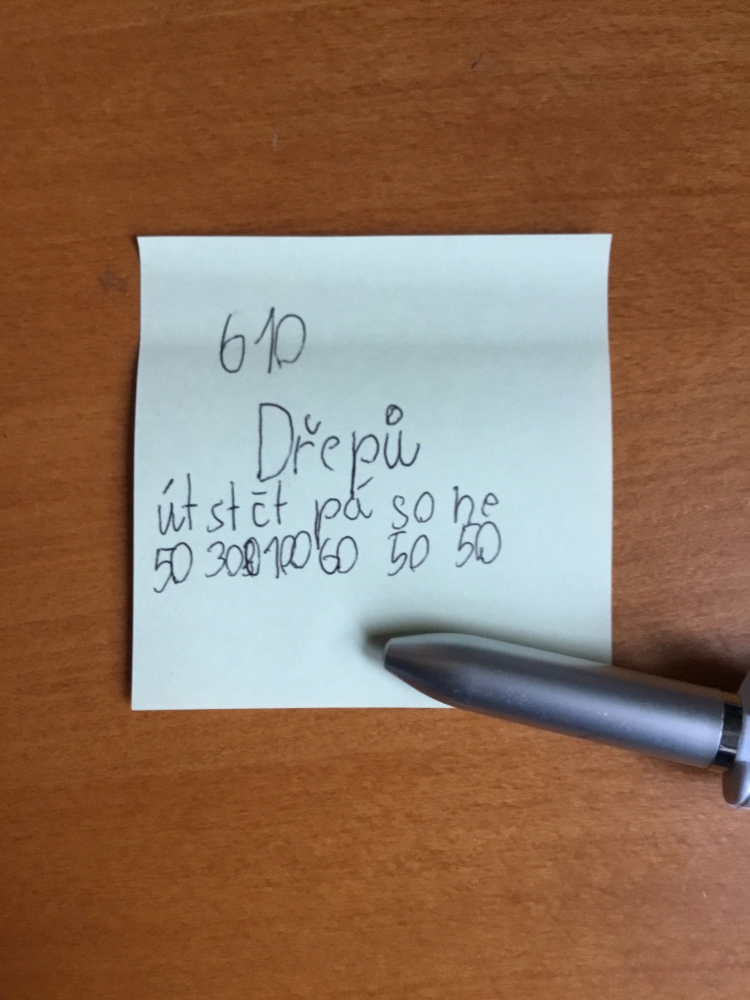 610
Dřepů
út st čt pá so ne
50 300 100 60 50 50